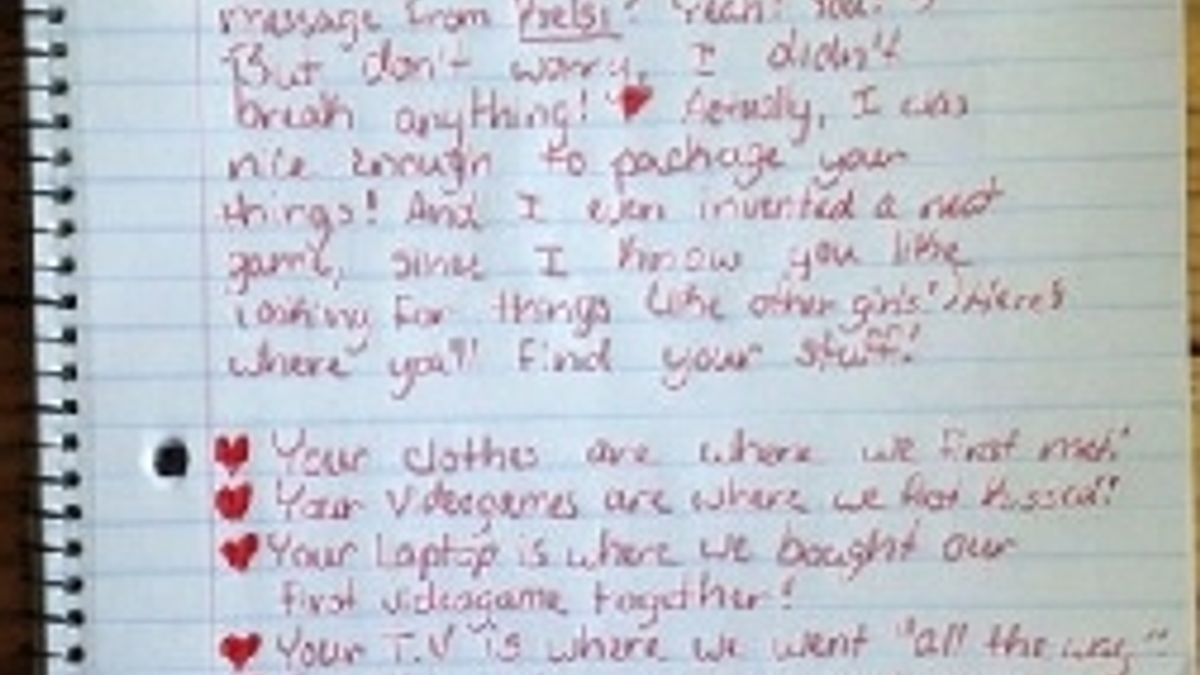 message from Kelsi? Yeah! You!
But don't worry, I didn't
break anything! Actually, I was
nice enough to package your
things! And I even invented a neat
game, since I know you like
looking for things (like other girls! ) Here's
where you'll find your stuff!
Your clothes are where we first met!
Your videogames are where we first kissed!
Your Laptop is where we bought our
first videogame together!
Your T.V is where we went "all the way"!